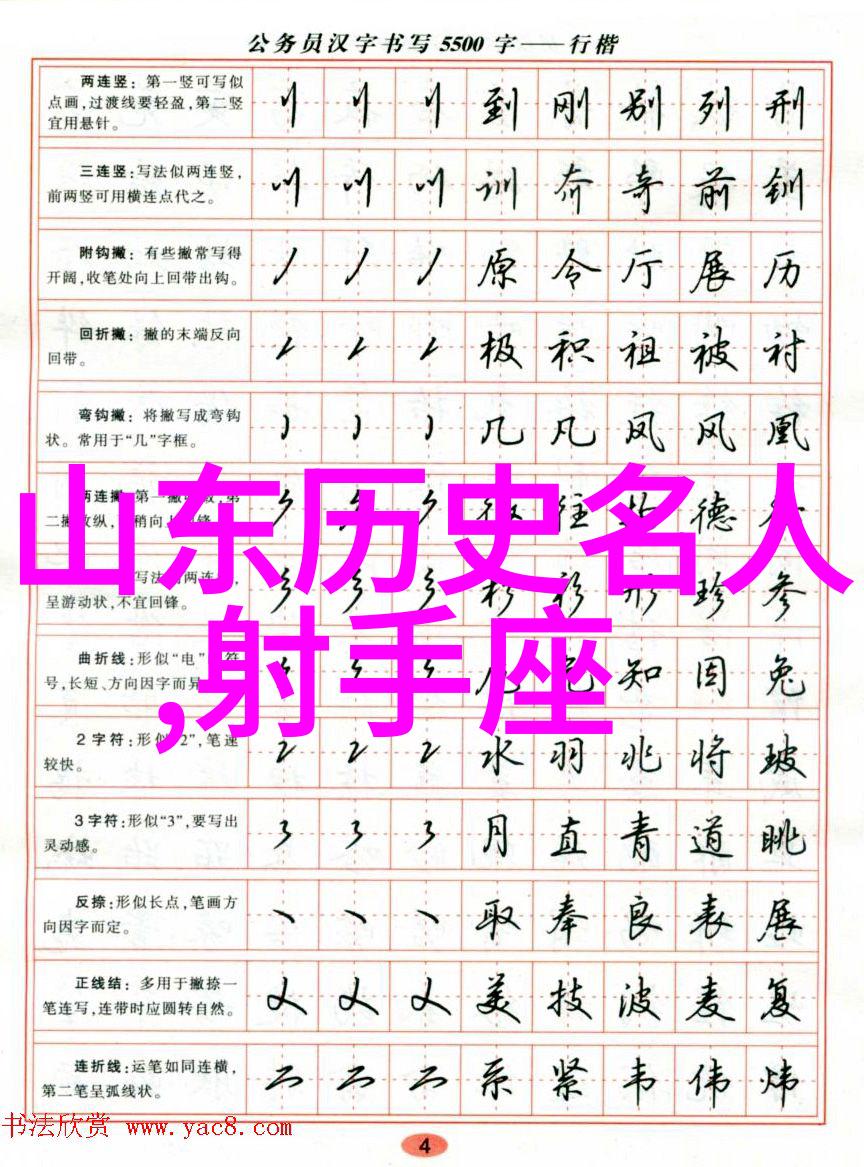 公务员汉字书写5500字——行楷
两连竖：第一竖可写似
点画,过渡线要轻盈,第二竖
宜用悬针。
到 刚 别 列 刑
三连竖:写法似两连竖,
前两竖可用横连点代之。
训 夼 奇 前 钏
附钩撇：有些撇常写得
开阔,收笔处向上回带出钩。
原 令 厅 展 历
回折撇：撇的末端反向
回带。
极 积 祖 被 衬
弯钩撇：将撇写成弯钩
状。常用于“几”字框。
几 凡 凤 风 凰
两连撇
往 德
山东历史名人
,射手座
呈游动状,不宜回锋。
杉 形 珍 参
曲折线:形似“电”
号,长短、方向因字而异
知 因 兔
2字符:形似“2”,笔速
较快。
2 2 2 水 羽 兆 将 玻
3字符:形似“3”,要写出
灵动感。
3 3 3 月 直 青 道 眺
反捺:形似长点,笔画方
向因字而定。
取 奉 良 表 展
正线结：多用于撇捺一
笔连写,连带时应圆转自然。
美 技 波 麦 复
连折线:运笔如同连横,
第二笔呈弧线状。
系 紧 韦 伟 炜
书法欣赏 www.yac8.com
4